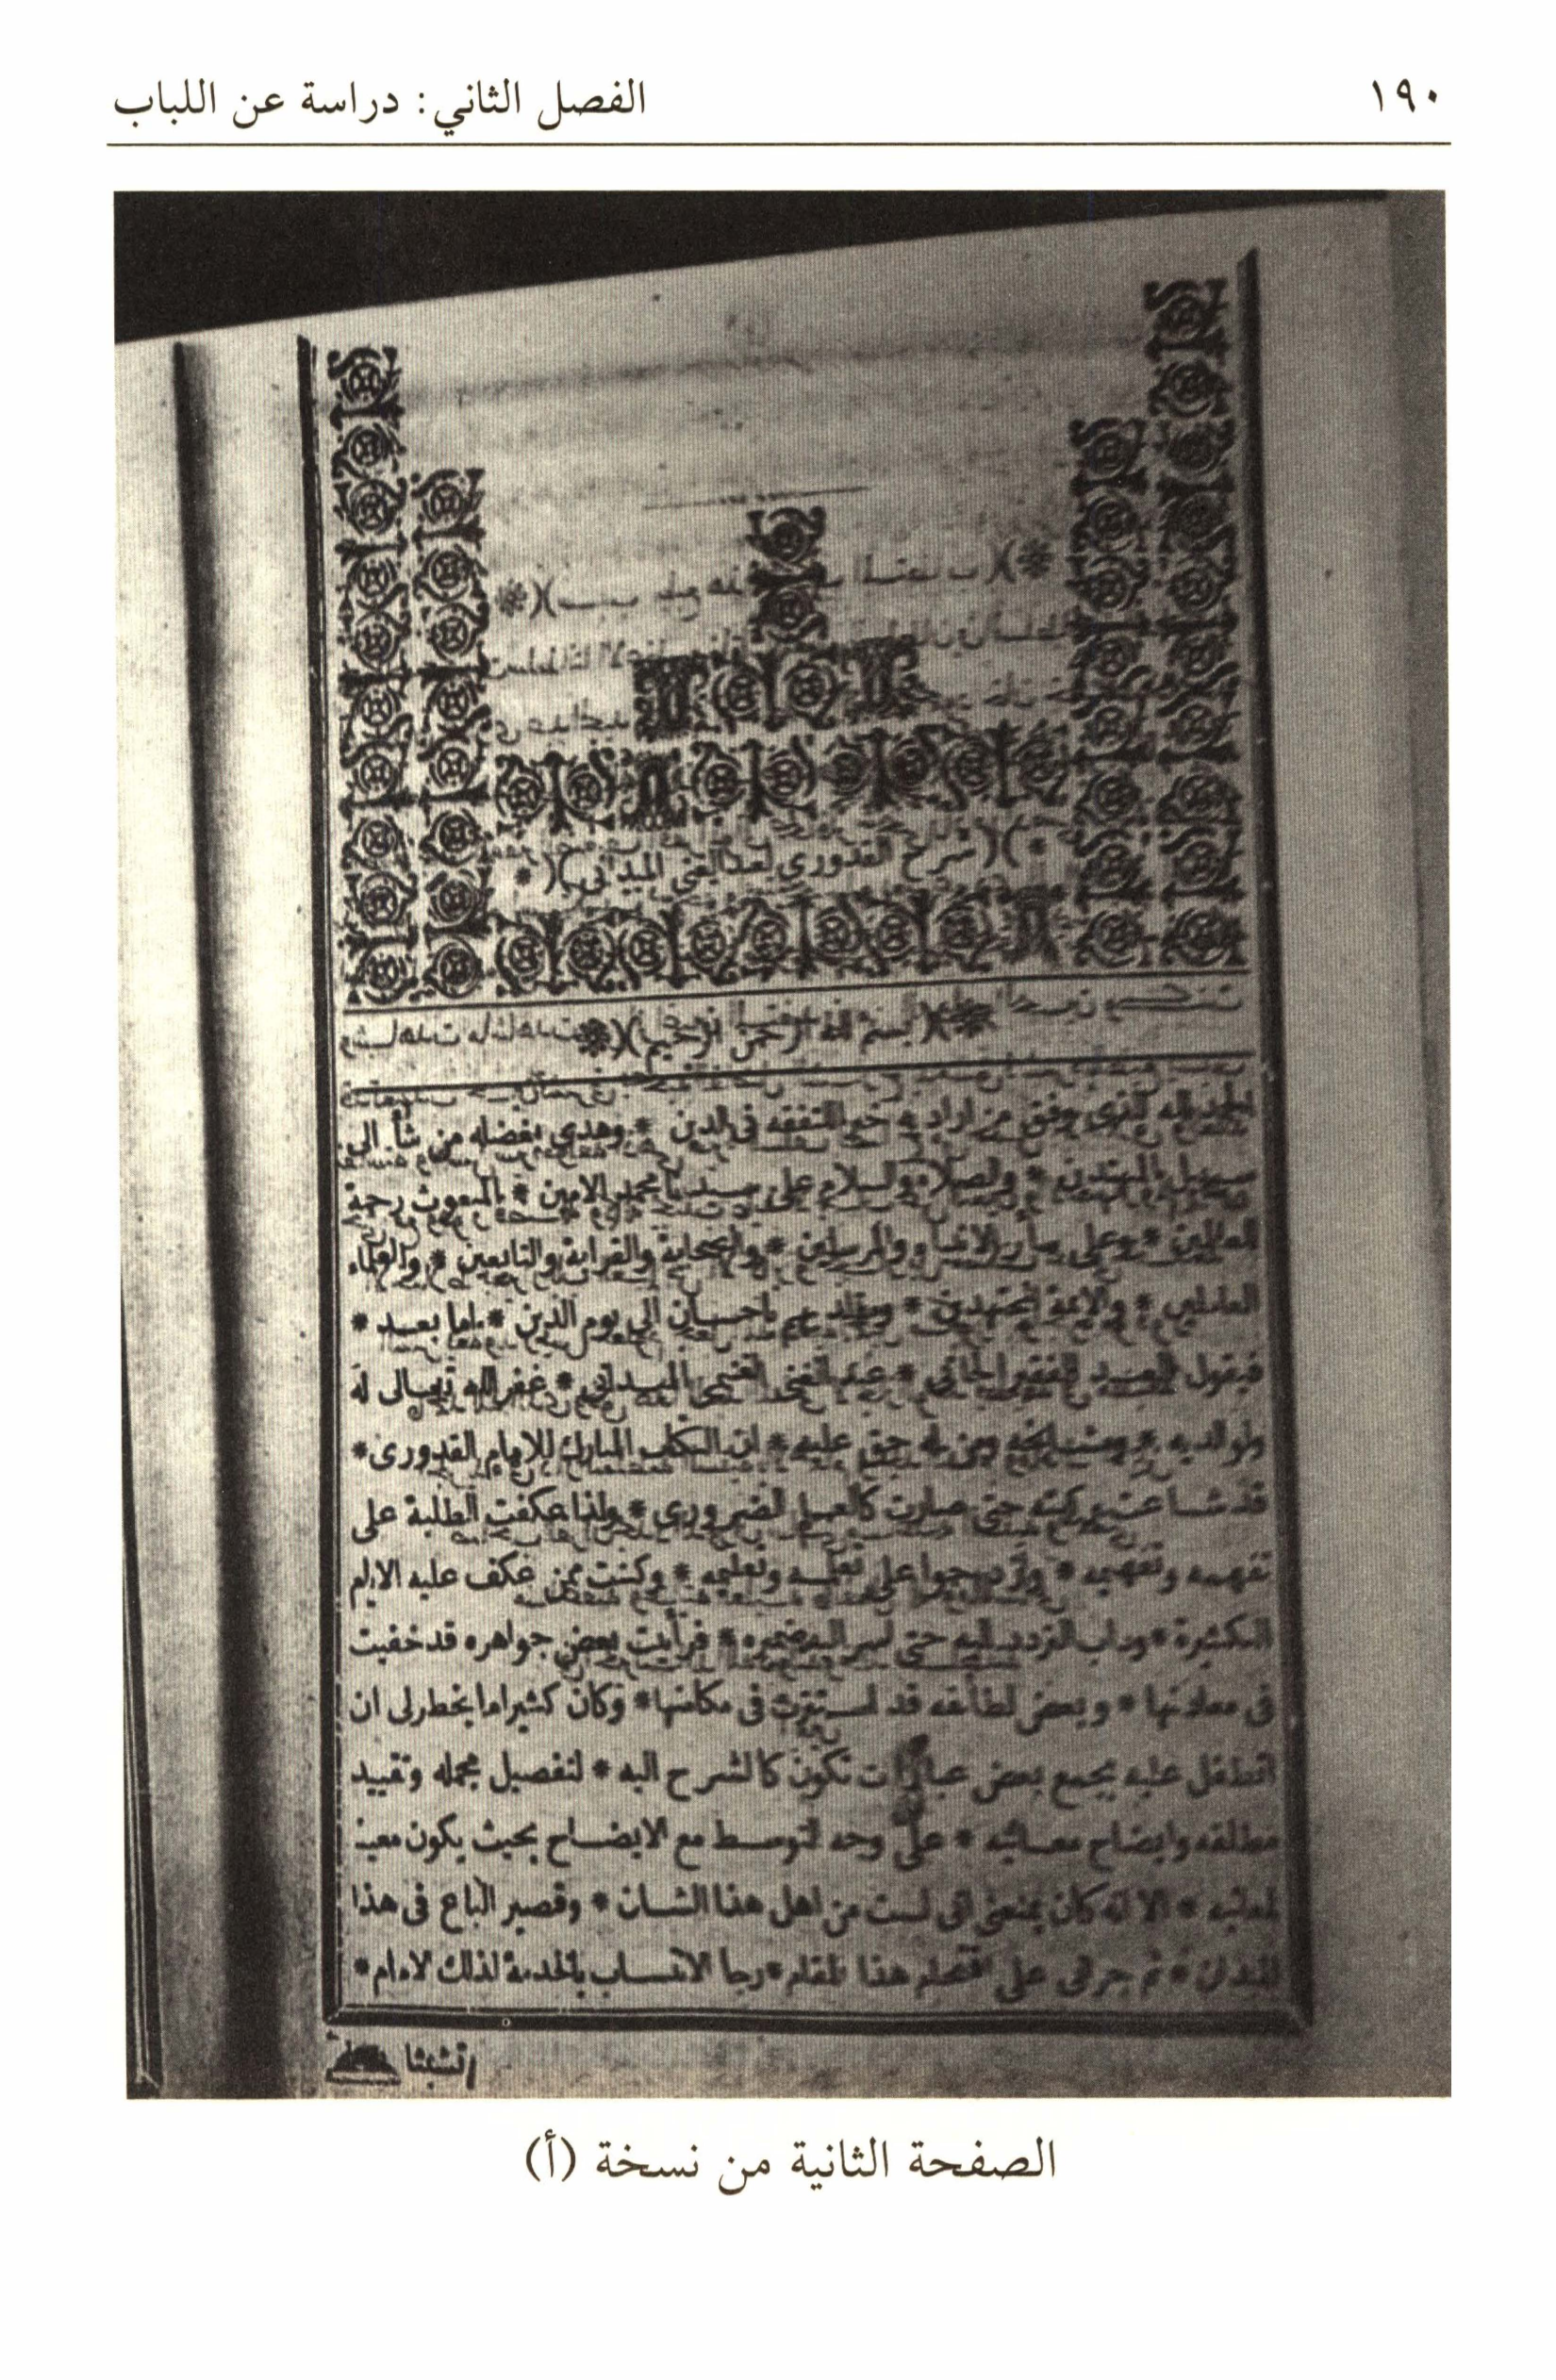 ١٩٠
الفصل الثاني: دراسة عن اللباب
*)(شرح القدورى لعبد الغنى الميدانى)(*
*)(بسم الله الرحمن الرحيم)(*
الحمد لله الذى وفق من اراد به خيرا للتفقه فى الدين * وهدى بفضله من شأ الى
سبيل المهتدين * والصلاة والسلام على سيدنا محمد الامين * المبعوث رحمة
للعالمين * وعلى سائر الانبياء والمرسلين * والصحابة والقرابة والتابعين * والعلماء
العاملين * والائمة المجتهدين * ومقلديهم باحسان الى يوم الدين * اما بعد *
فيقول العبد الفقير الجانى * عبد الغنى الغنيمى الميدانى * غفر الله تعالى له
ولوالديه * ومشايخه ومن له حق عليه * ان الكتاب المبارك للامام القدورى *
قد شاعت بركته حتى صارت كالعلم الضرورى * ولذا عكفت الطلبة على
تفهمه وتفهيمه * وازدحموا على تعلمه وتعليمه * وكنت ممن عكف عليه الايام
الكثيرة * وداب التردد اليه حتى اسر اليه ضميره * فرأيت بعض جواهره قد خفيت
فى معادنها * وبعض لطائفه قد استترت فى مكامنها * وكان كثيرا ما يخطر لى ان
اتطفل عليه بجمع بعض عبارات تكون كالشرح اليه * لتفصيل مجمله وتقييد
مطلقه وايضاح معانيه * على وجه التوسط مع الايضاح بحيث يكون معينا
لمعانيه * الا انه كان يمنعنى انى لست من اهل هذا الشان * وقصير الباع فى هذا
الميدان * ثم جرانى على اقتحام هذا المقام * رجا الانتساب بالخدمة لذلك الامام *
الصفحة الثانية من نسخة (أ)